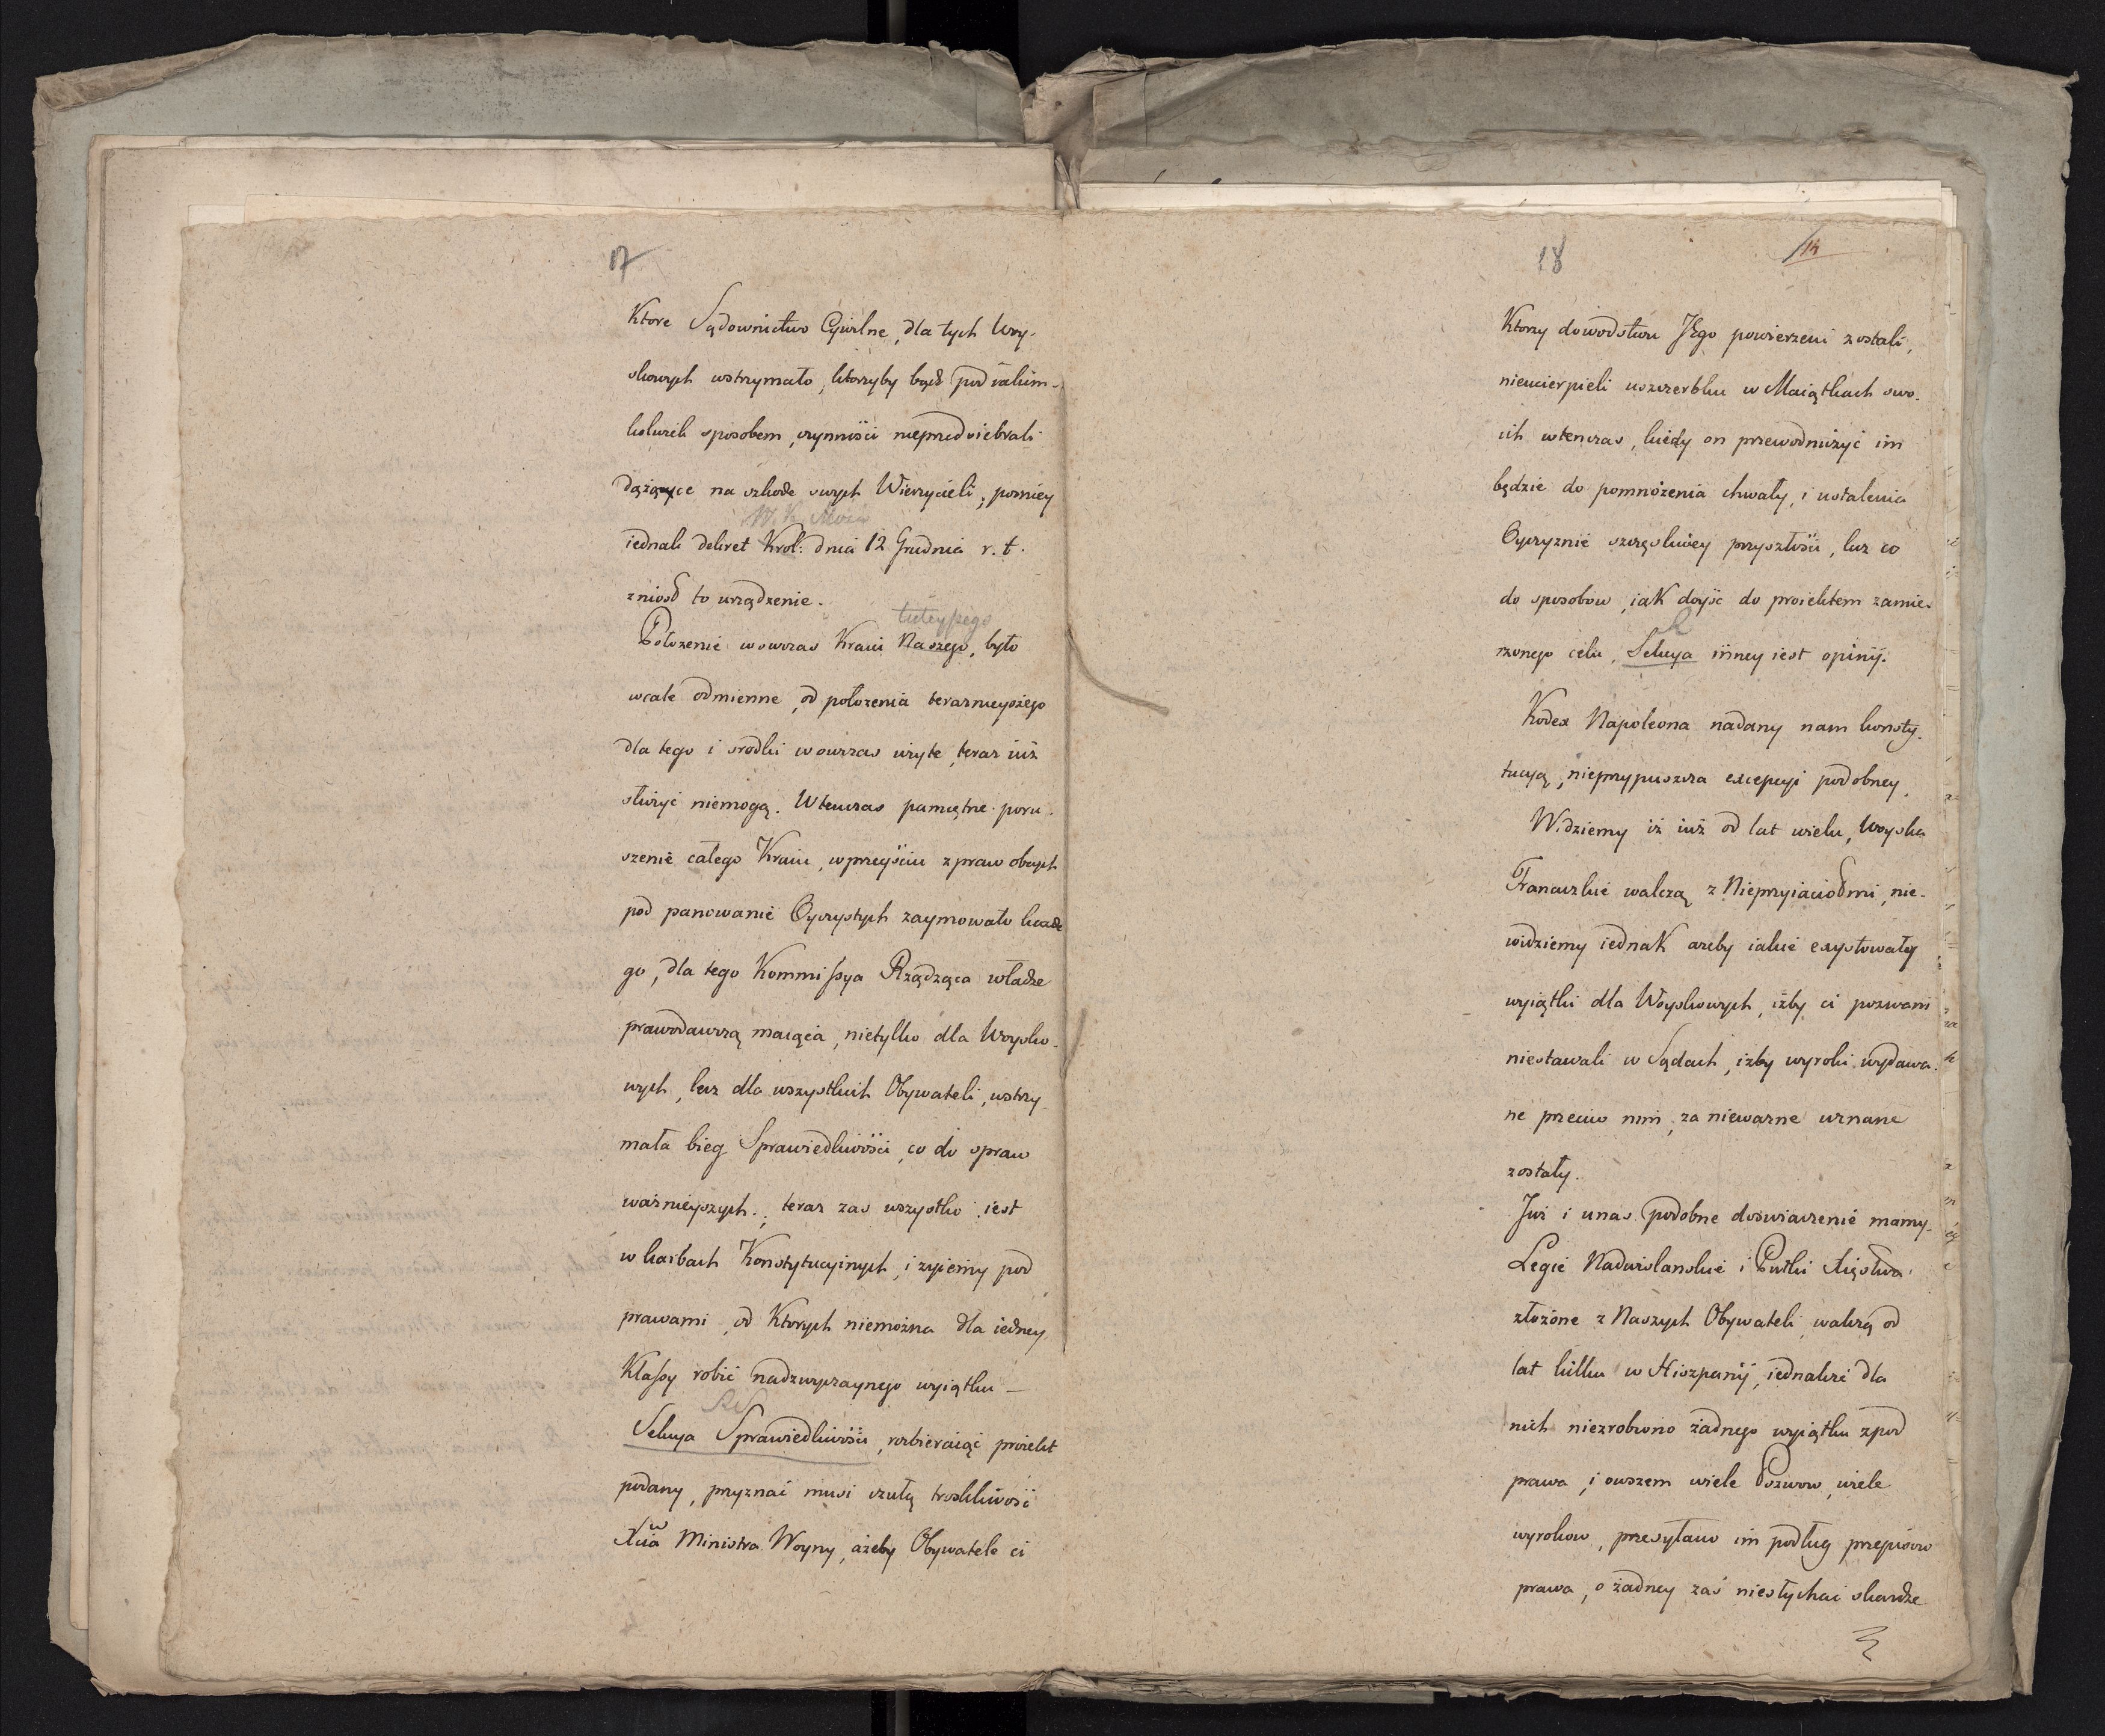 17
Ktore Sądownictwo Cywilne, dla tych Woy-
skowych wstrzymało, ktorzyby bądź pod iakim-
kolwiek sposobem, czynności nieprzedsiebrali
dążące na szkode swych Wierzycieli, pozniey
W. K. Mości
iednak dekret Krol: dnia 12 Grudnia r. t.
zniosł to urządzenie.
tuteyszego
Położenie wowczas Kraiu Naszego, było
wcale odmienne, od położenia teraznieyszego
dla tego i srodki wowczas użyte, teraz iuż
służyć niemogą. Wtenczas pamiętne poru-
szenie całego Kraiu, w przeyściu z praw obcych
pod panowanie Oyczystych zaymowało każde
go, dla tego Kommissya Rządząca władze
prawodawczą maiąca, nietylko dla Woysko-
wych, lecz dla wszystkich Obywateli, wstrzy
mała bieg Sprawiedliwości, co do spraw
ważnieyszych.; teraz zas wszystko iest
w karbach Konstytucyinych, i żyiemy pod
prawami, od Ktorych niemożna dla iedney
Klassy robić nadzwyczaynego wyiątku —
Sekcya Sprawiedliwości, rozbieraiąc proiekt
podany, przyznać musi czułą troskliwość
Xcia Ministra Woyny, ażeby Obywatele ci
18
14
Ktorzy dowodztwu Jego powierzeni zostali,
niecierpieli uszczerbku w Maiątkach swo-
ich wtenczas, kiedy on przewodniczyć im
będzie do pomnożenia chwały, i ustalenia
Oyczyznie szczęsliwey przyszłości, lecz co
do sposobow, iak doyść do proiektem zamie-
rzonego celu, Sekcya inney iest opinij.
Kodex Napoleona nadany nam konsty-
tucyą, nieprzypuszcza excepcyi podobney.
Widziemy iż iuż od lat wielu, Woyska
Francuzkie walczą z Nieprzyiaciołmi, nie-
widziemy iednak azeby iakie exystowały
wyiątki dla Woyskowych, iżby ci pozwani
niestawali w Sądach, izby wyroki wydawa-
ne przeciw nim, za nieważne uznane
zostały.
Już i unas podobne doswiadczenie mamy.
Legie Nadwislanskie i Pułki Xięstwa
złożone z Naszych Obywateli walczą od
lat kilku w Hiszpanij, iednakże dla
nich niezrobiono żadnego wyiątku zpod
prawa, i owszem wiele Pozwow, wiele
wyrokow, przesyłano im podług przepisow
prawa, o żadney zaś niesłychac skardze